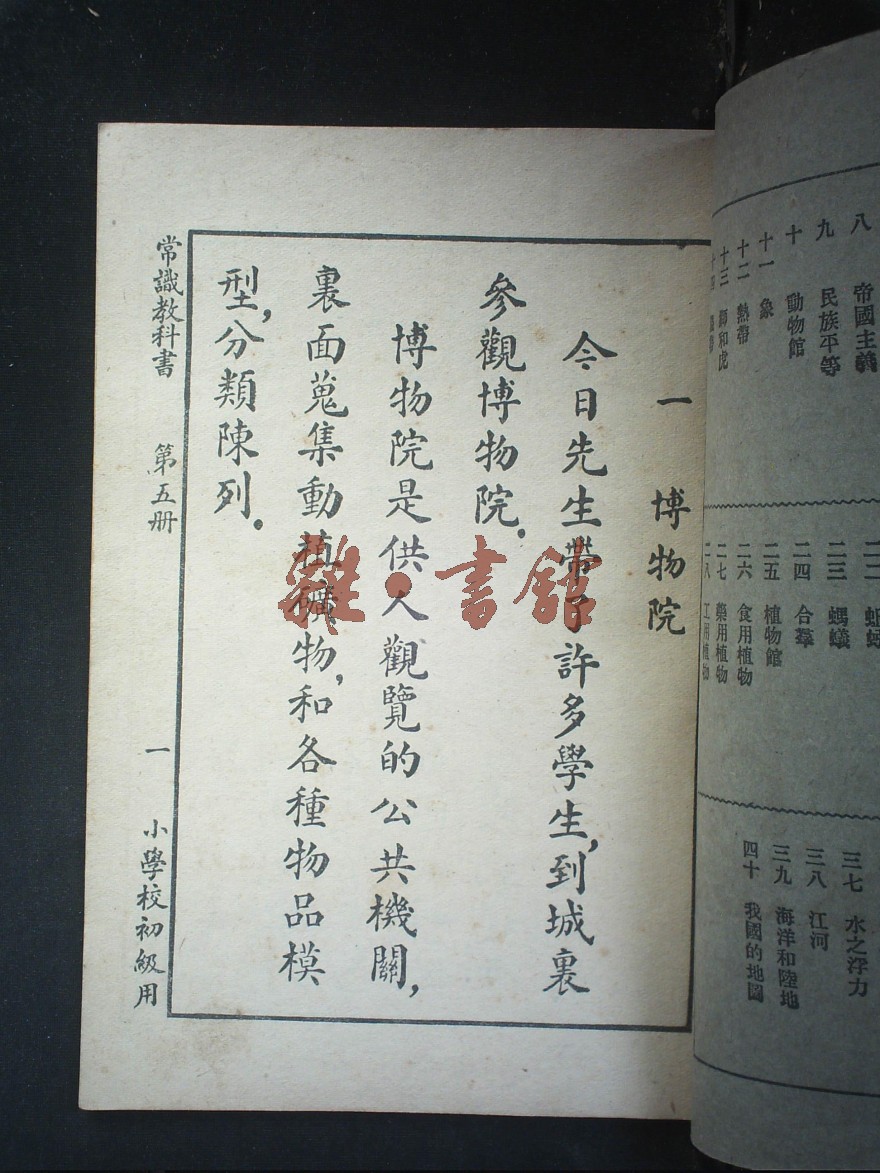 八 帝國主義
九 民族平等
十 動物館
十一 象
十二 熱帶
十三 獅和虎
二三 螞蟻
二四 合羣
二五 植物館
二六 食用植物
二七 藥用植物
二八 工用植物
三七 水之浮力
三八 江河
三九 海洋和陸地
四十 我國的地圖
一 博物院
今日先生帶了許多學生,到城裏
參觀博物院.
博物院是供人觀覽的公共機關,
裏面蒐集動植礦物,和各種物品模
型,分類陳列.
常識教科書 第五册 一 小學校初級用
雜·書館